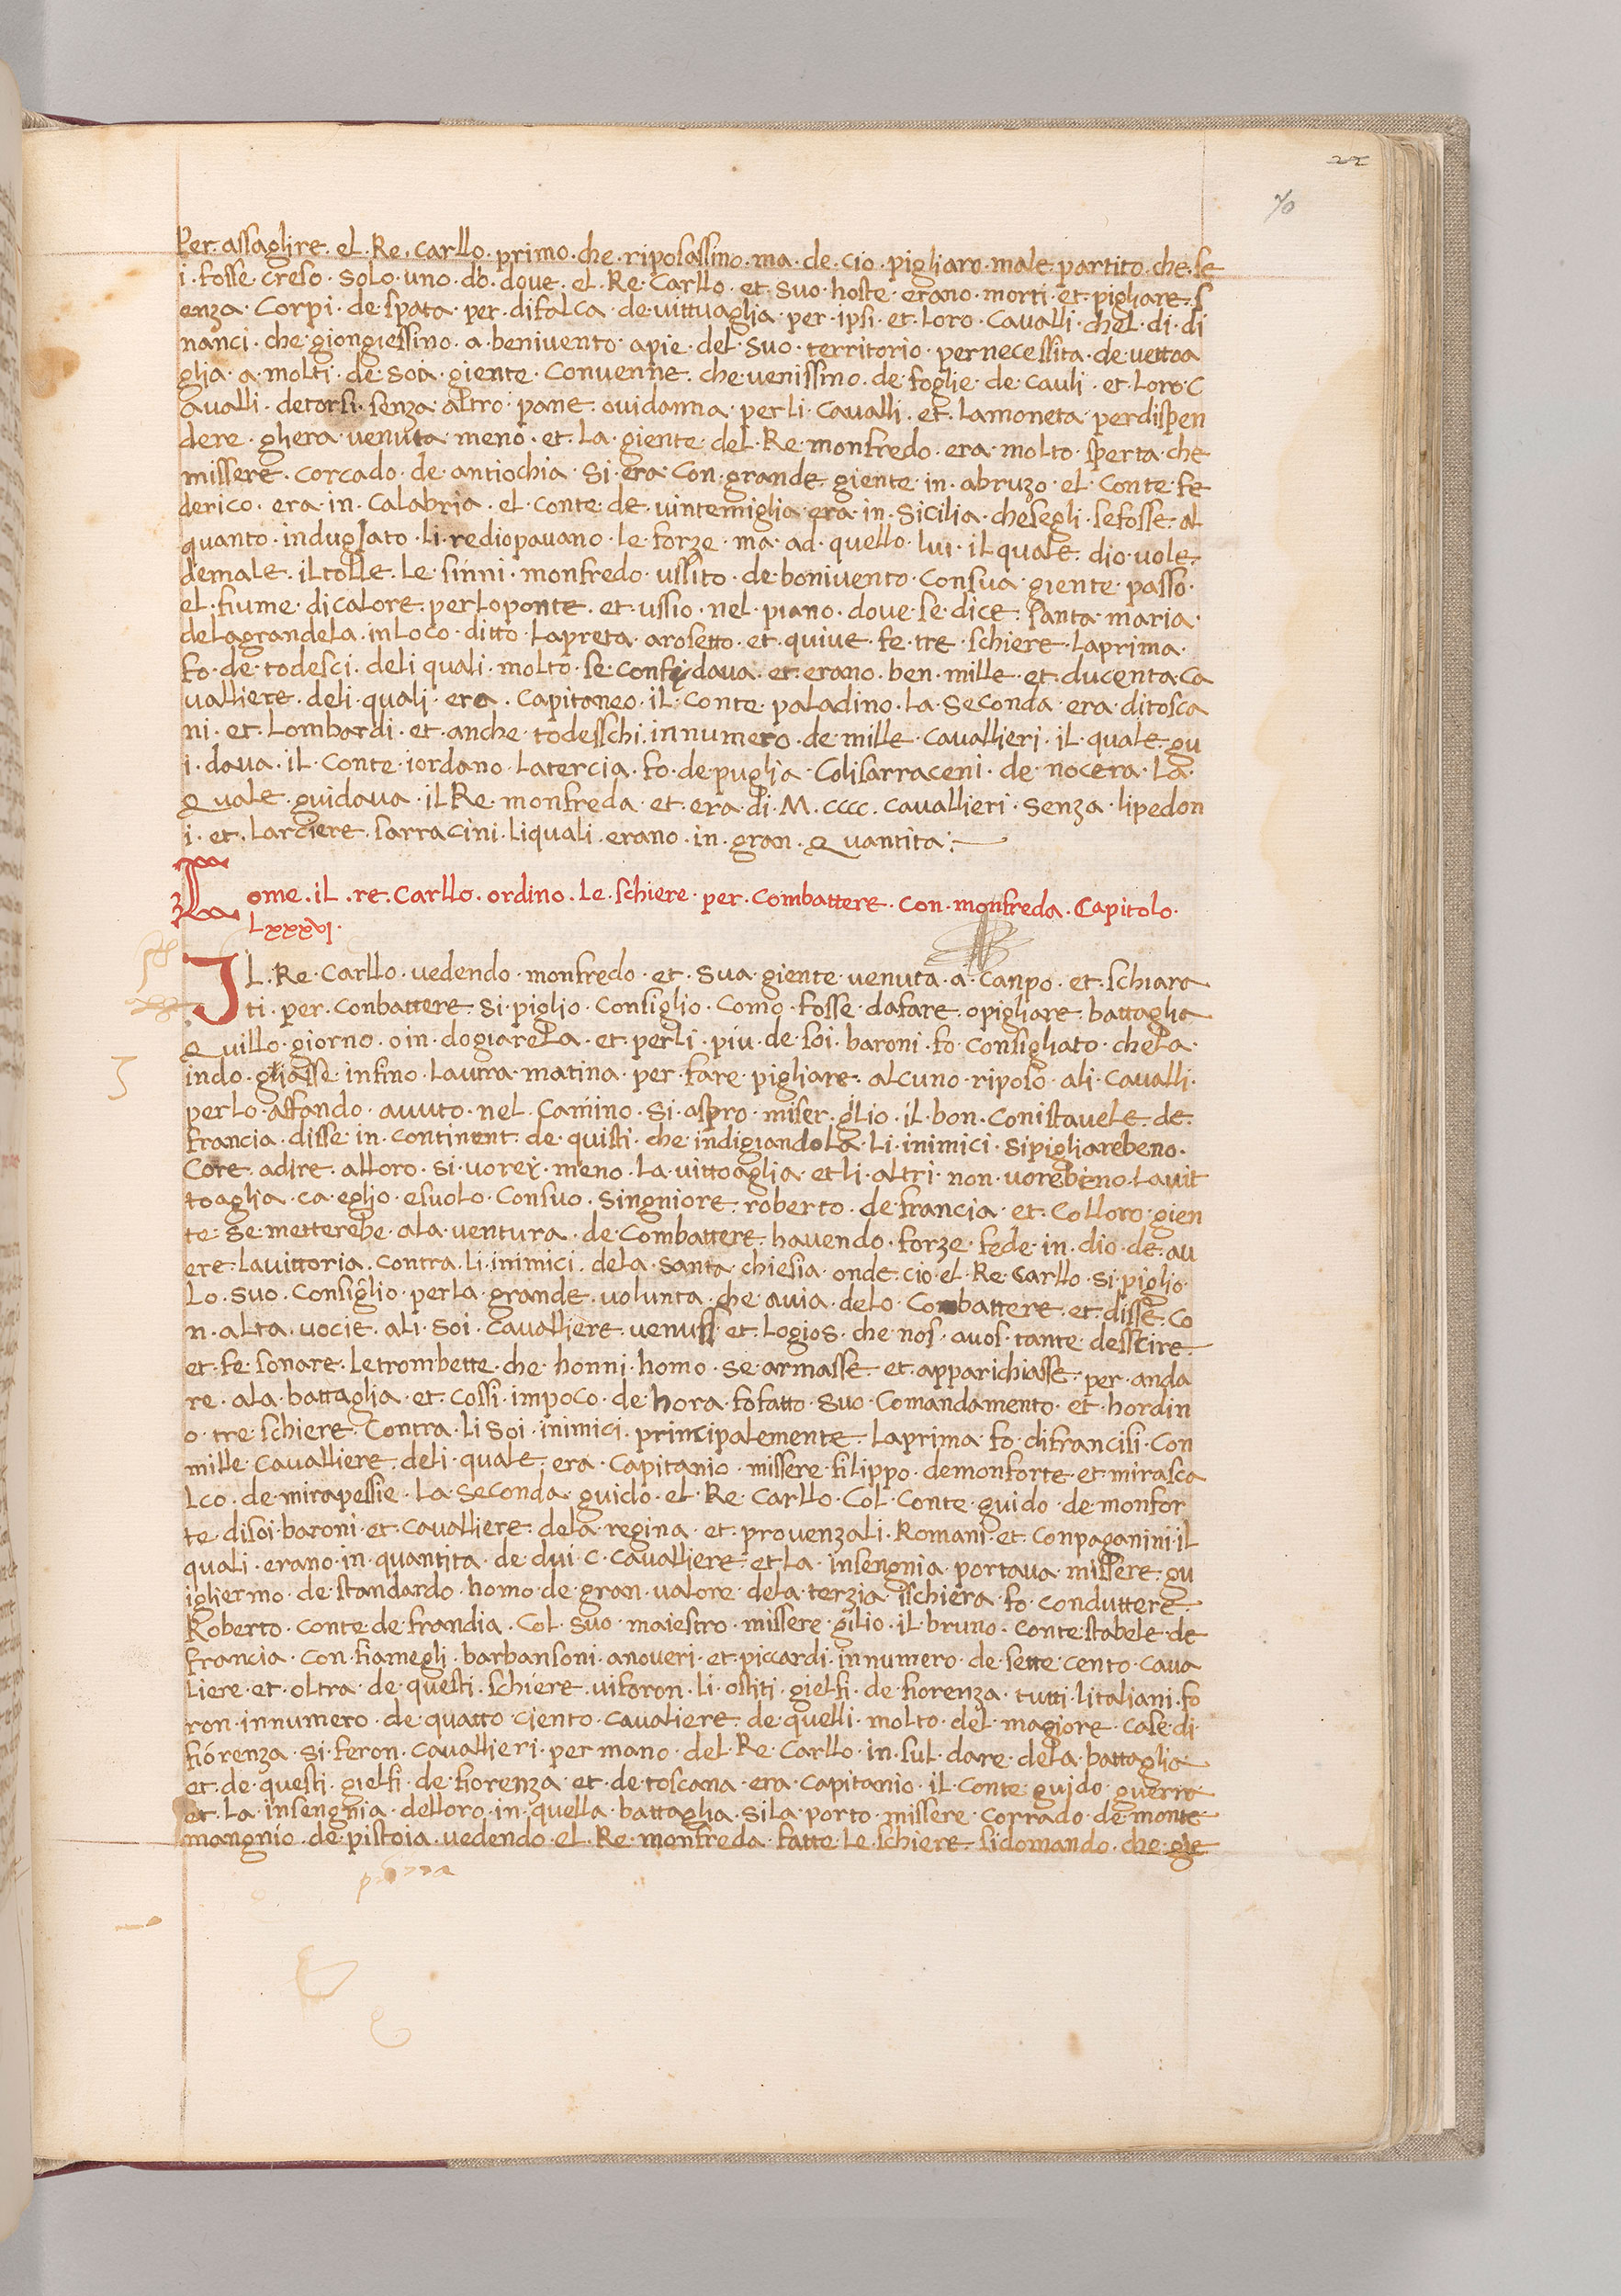 70
Per. assaglire. el. Re. carllo. primo. che. riposassino. ma. de. cio. pigliaro. male. partito. che. se
i. fosse. creso. solo. uno. dò. dove. el. Re. Carllo. et. suo. hoste. erano. morti. et. pighare. s
enza. Corpi. de. spata. per. difalca. de. vittuaglia. per. ipsi. et. loro. Cavalli. chel. di. di
nanci. che. giongiessino. a. benivento. apie. del. suo. territorio. pernecessita. de. vettoa
glia. a. molti. de. soia. giente. Convenne. che venissino. de. foglie. de. cauli. et. loro. C
avalli. detorsi. senza. altro. pane. ovidanna. perli. Cavalli. et. lamoneta. perdispen
dere. ghera. venuta. meno. et. La. giente. del. Re. monfredo. era. molto. sperta. che
missere. corcado. de. antiochia. Si. era. Con. grande. giente. in. abruzo. el. Conte. fe
derico. era. in. Calabria. el. conte. de. vintemiglia. era. in. Sicilia. chesegli. sefosse. al
quanto. indugiato. li. rediopavano. le. forze. ma. ad. quello. lui. il quale. dio. vole.
demale. iltolle. le. sinni. monfredo. ussito. de. bonivento. Consua. giente. passo.
el. fiume. dicalore. perloponte. et. ussio. nel. piano. dove. se. dice. santa. maria.
delagrandela. inloco. ditto. lapreta. arosetto. et. quive. fe. tre. schiere. laprima.
fo. de. todesci. deli quali. molto. se. Confidava. et. erano. ben. mille. et. ducenta. ca
valliere. deli. quali. era. Capitaneo. il. Conte. paladino. la. seconda. era. ditosca
ni. et. Lombardi. et. anche. todesschi. innumero. de. mille. Cavallieri. il. quale. gu
i. dava. il. Conte. iordano. latercia. fo. de. puglia. Colisarraceni. de. nocera. la.
Quale. guidava. il Re. monfreda. et. era. di. M. cccc. cavallieri. senza. lipedon
i. et. larciere. sarracini. liquali. erano. in. gran. Quantita
Come. il. re. Carllo. ordino. le. schiere. per. Combattere. con. monfreda. Capitolo.
Lxxxvj.
Il. Re. Carllo. vedendo. monfredo. et. sua. giente. venuta. a. Canpo. et. schiara
ti. per. Conbattere. Si. piglio. Consiglio. Como. fosse. dafare. opigliare. battaglia
Quillo. giorno. oin. dogiarela. et. perli. piu. de. soi. baroni. fo. Consigliato. chela.
indo. gliasse. infino. lautra. matina. per. fare. pigliare. alcuno. riposo. ali. Cavalli.
perlo. affando. avuto. nel. Camino. Si. aspro. miser. glio. il. bon. Conistavele. de.
francia. disse. in. continent. de. quisti. che. indigiandola. li. inimici. sipigliarebeno.
Core. adire. alloro. si. vorei. meno. la. vittoaglia. etli. altri. non. vorebeno. lavit
toaglia. ca. eglio. esuolo. Consuo. Singniore. roberto. de. francia. et. Colloro. gien
te. se. metterebe. ala. ventura. de. Combattere. havendo. forze. fede. in. dio. de. av
ere. lavittoria. Contra. li. inimici. dela. santa. chiesia. onde. cio. el. Re. Carllo. si. piglio.
Lo. suo. Consiglio. perla. grande. volunta. che. avia. delo. Combattere. et. disse. co
n. alta. vocie. ali. soi. Cavalliere. venuss. et. logios. che. nos. avos. tante. desscire.
et. fe. sonare. letrombette. che. honni. homo. se. armasse. et. apparichiasse. per. anda
re. ala. battaglia. et. Cossi. impoco. de. hora. fofatto. suo. Comandamento. et. hordin
o. tre. schiere. Contra. li soi. inimici. principalemente. laprima. fo. difrancisi. con
mille. cavalliere. deli. quale. era. Capitanio. missere. filippo. demonforte. et. mirasca
lco. de. mirapessie. la. seconda. guido. el. Re. Carllo. Col. Conte. guido. de. monfor
te. disoi. baroni. et. cavalliere. dela. regina. et. provenzali. Romani. et. Conpaganini. il
quali. erano. in. quantita. de. dui. c. cavalliere. et la. insengnia. portava. missere. gu
igliermo. de. standardo. homo. de. gran. valore. dela. terzia. ischiera. fo. conduttere
Roberto. conte. de. frandia. Col. suo. maiestro. missere. gilio. il. bruno. Contestabele. de
francia. Con. fiamegli. barbansoni. anoveri. et. piccardi. innumero. de. sette. cento. cava
liere. et. oltra. de. questi. schiere. viforon. li. ostiti. gielfi. de. fiorenza. tutti. litaliani. fo
ron. innumero. de. quatto. ciento. cavaliere. de. quelli. molto. del. magiore. case. di.
fiorenza. si. feron. cavallieri. per mano. del. Re. Carllo. in. sul. dare. dela. battaglia
et. de. questi. gielfi. de. fiorenza. et. de. toscana. era. Capitanio. il. Conte. guido. guerra
et. la. insengnia. delloro. in. quella. battaglia. sila. porto. missere. Corrado. de. monte
mangnio. de. pistoia. vedendo. el. Re. monfreda. fatte. le. schiere. sidomando. che. gie